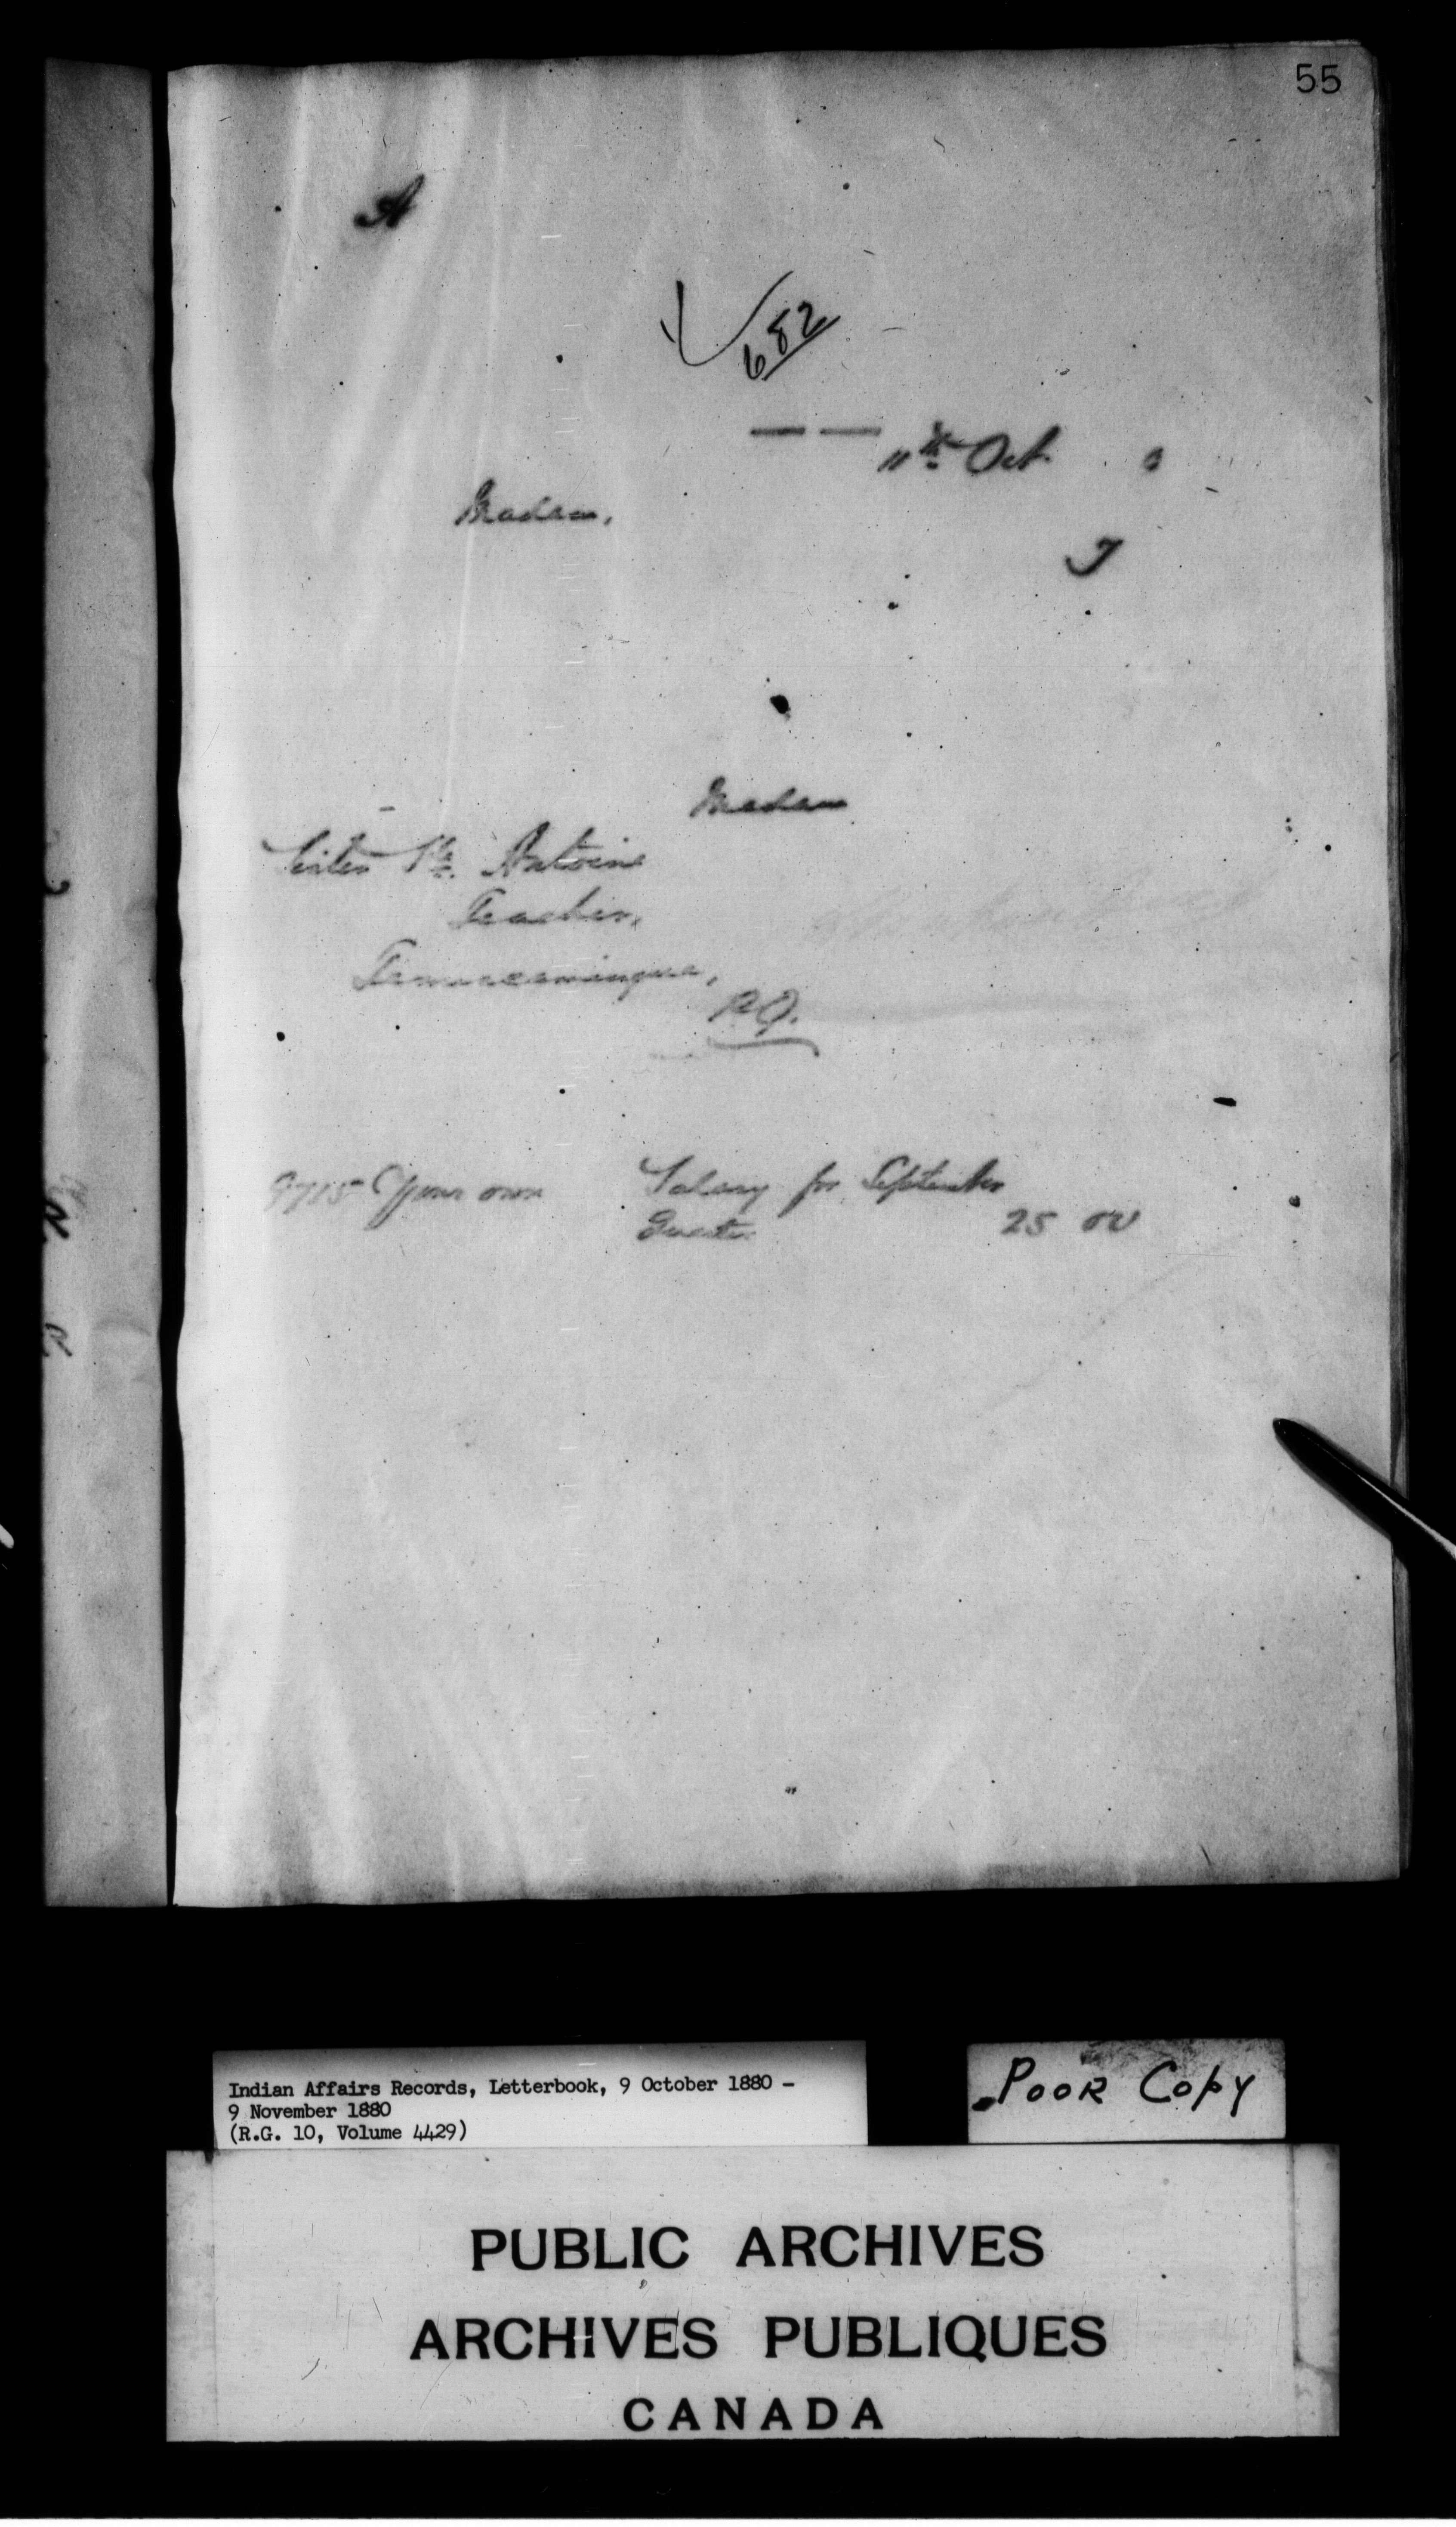 55
A
682
11th Oct. 0
Madam,
I
Madam
Sister St. Antoine
Teacher,
Temiscamingue,
P.Q.
9715 Your own Salary for September
Quarter 25 00
Indian Affairs Records, Letterbook, 9 October 1880 -
9 November 1880
(R.G. 10, Volume 4429)
POOR COPY
PUBLIC ARCHIVES
ARCHIVES PUBLIQUES
CANADA